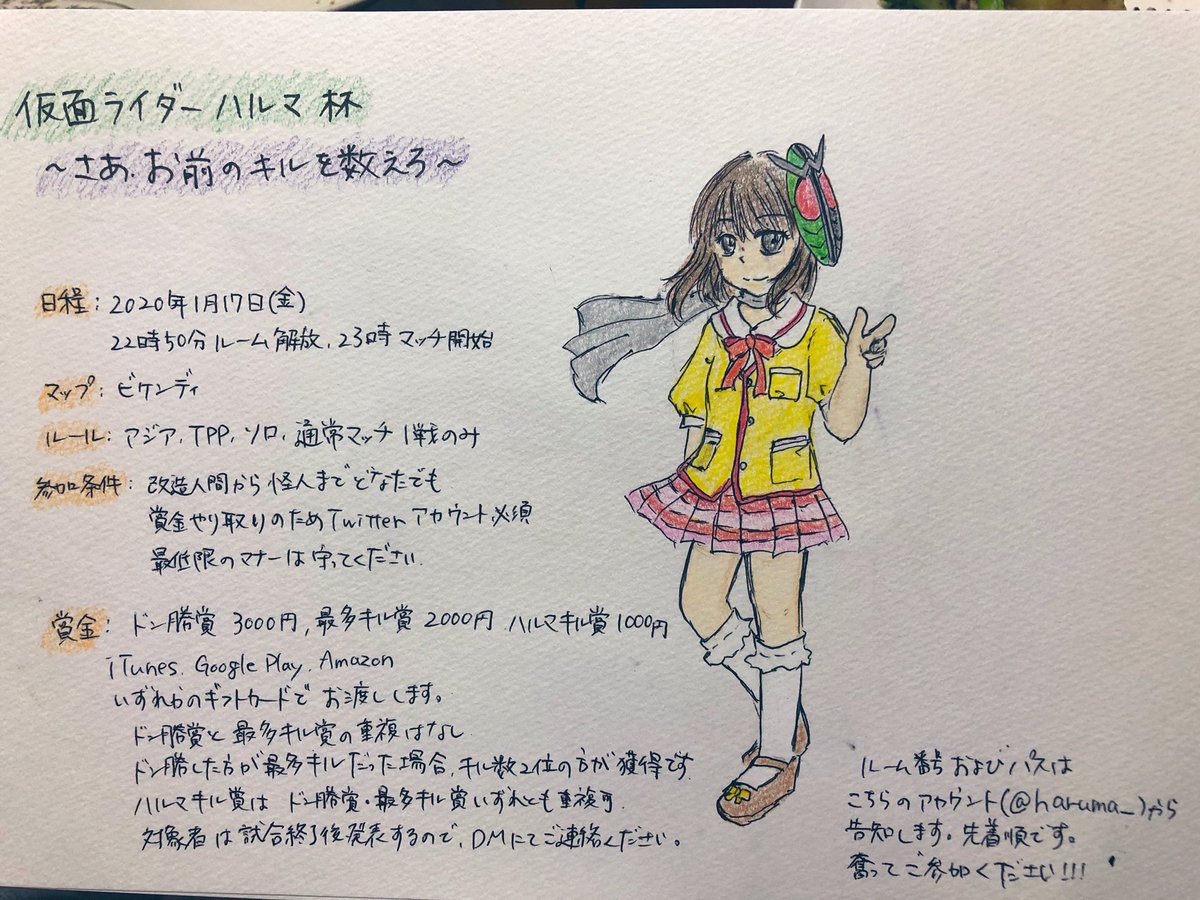 仮面ライダーハルマ杯
～さあ、お前のキルを数えろ～
日程：2020年1月17日(金)
22時50分ルーム解放、23時マッチ開始
マップ：ビケンディ
ルール：アジア、TPP、ソロ、通常マッチ1戦のみ
参加条件：改造人間から怪人までどなたでも
賞金やり取りのためTwitterアカウント必須
最低限のマナーは守ってください
賞金：ドン勝賞 3000円、最多キル賞 2000円 ハルマキル賞 1000円
iTunes、Google Play、Amazon
いずれかのギフトカードでお渡しします。
ドン勝賞と最多キル賞の重複はなし
ドン勝した方が最多キルだった場合、キル数2位の方が獲得です
ハルマキル賞はドン勝賞・最多キル賞いずれとも重複可
対象者は試合終了後発表するので、DMにてご連絡ください。
ルーム番号およびパスは
こちらのアカウント(@haruma_)から
告知します。先着順です。
奮ってご参加ください!!!